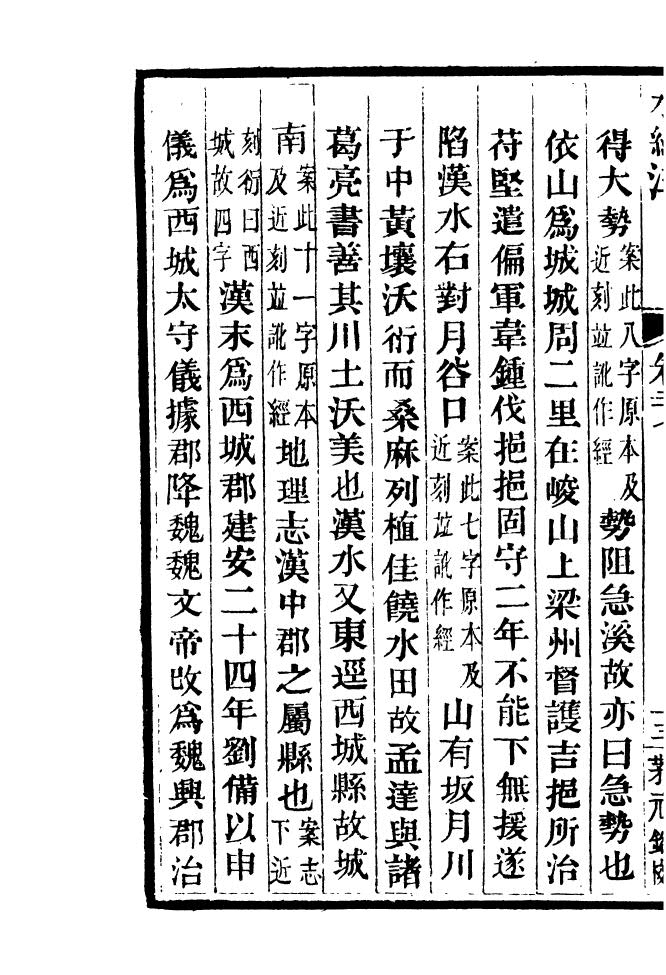 水經注
得大勢案此八字原本及近刻竝訛作經勢阻急溪故亦曰急勢也
依山爲城城周二里在峻山上梁州督護吉挹所治
苻堅遣偏軍韋鍾伐挹挹固守二年不能下無援遂
陷漢水右對月谷口案此七字原本及近刻竝訛作經山有坂月川
于中黃壤沃衍而桑麻列植佳饒水田故孟達與諸
葛亮書善其川土沃美也漢水又東逕西城縣故城
南案此十一字原本及近刻竝訛作經地理志漢中郡之屬縣也案志下近
刻衍曰西城故四字漢末爲西城郡建安二十四年劉備以申
儀爲西城太守儀據郡降魏魏文帝改爲魏興郡治